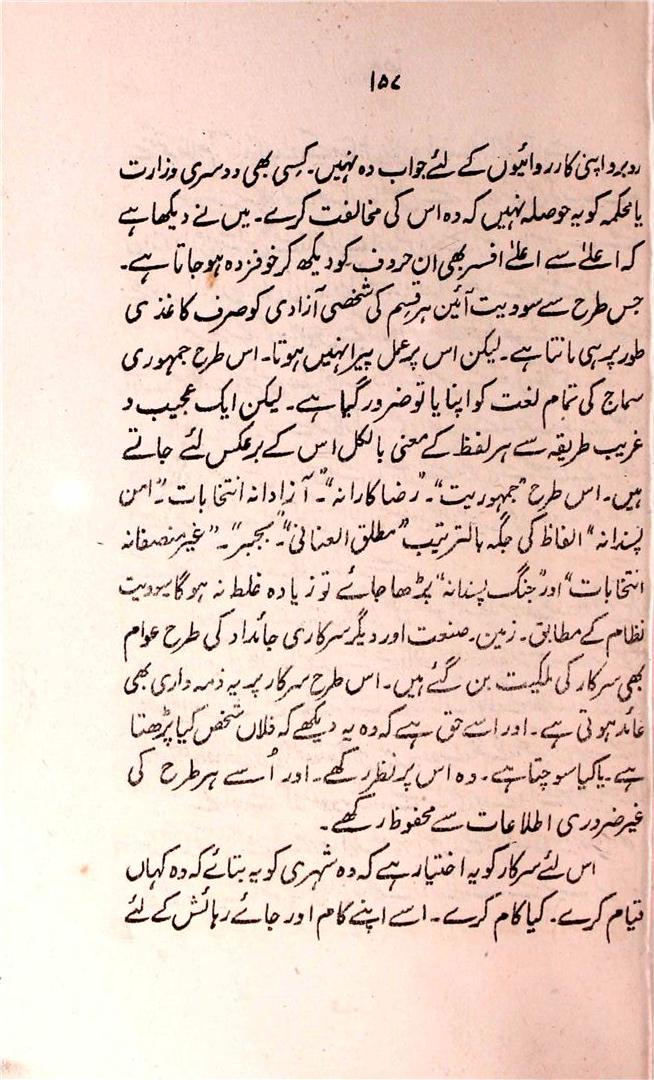 ۱۵۷
روبرو اپنی کارروائیوں کے لئے جواب دہ نہیں۔ کِسی بھی دوسری وزارت
یا محکمہ کو یہ حوصلہ نہیں کہ وہ اس کی مخالفت کرے۔ میں نے دیکھا ہے
کہ اعلیٰ سے اعلیٰ افسر بھی ان حروف کو دیکھ کر خوفزدہ ہو جاتا ہے۔
جس طرح سے سوویت آئین ہر قسم کی شخصی آزادی کو صرف کاغذی
طور پر ہی مانتا ہے۔ لیکن اس پر عمل پیرا نہیں ہوتا۔ اس طرح جمہوری
سماج کی تمام لغت کو اپنایا تو ضرور گیا ہے۔ لیکن ایک عجیب و
غریب طریقہ سے ہر لفظ کے معنی بالکل اس کے برعکس لئے جاتے
ہیں۔ اس طرح "جمہوریت"۔ "رضاکارانہ"۔ "آزادانہ انتخابات"۔ "امن
پسندانہ" الفاظ کی جگہ بالترتیب "مطلق العنانی"۔ "بجبر"۔ "غیر منصفانہ
انتخابات" اور "جنگ پسندانہ" پڑھا جائے تو زیادہ غلط نہ ہوگا سوویت
نظام کے مطابق۔ زمین۔ صنعت اور دیگر سرکاری جائداد کی طرح عوام
بھی سرکار کی ملکیت بن گئے ہیں۔ اس طرح سرکار پر یہ ذمہ داری بھی
عائد ہوتی ہے۔ اور اسے حق ہے کہ وہ یہ دیکھے کہ فلاں شخص کیا پڑھتا
ہے۔ یا کیا سوچتا ہے۔ وہ اس پر نظر رکھے۔ اور اُسے ہر طرح کی
غیر ضروری اطلاعات سے محفوظ رکھے۔
اس لئے سرکار کو یہ اختیار ہے کہ وہ شہری کو یہ بتائے کہ وہ کہاں
قیام کرے۔ کیا کام کرے۔ اسے اپنے کام اور جائے رہائش کے لئے